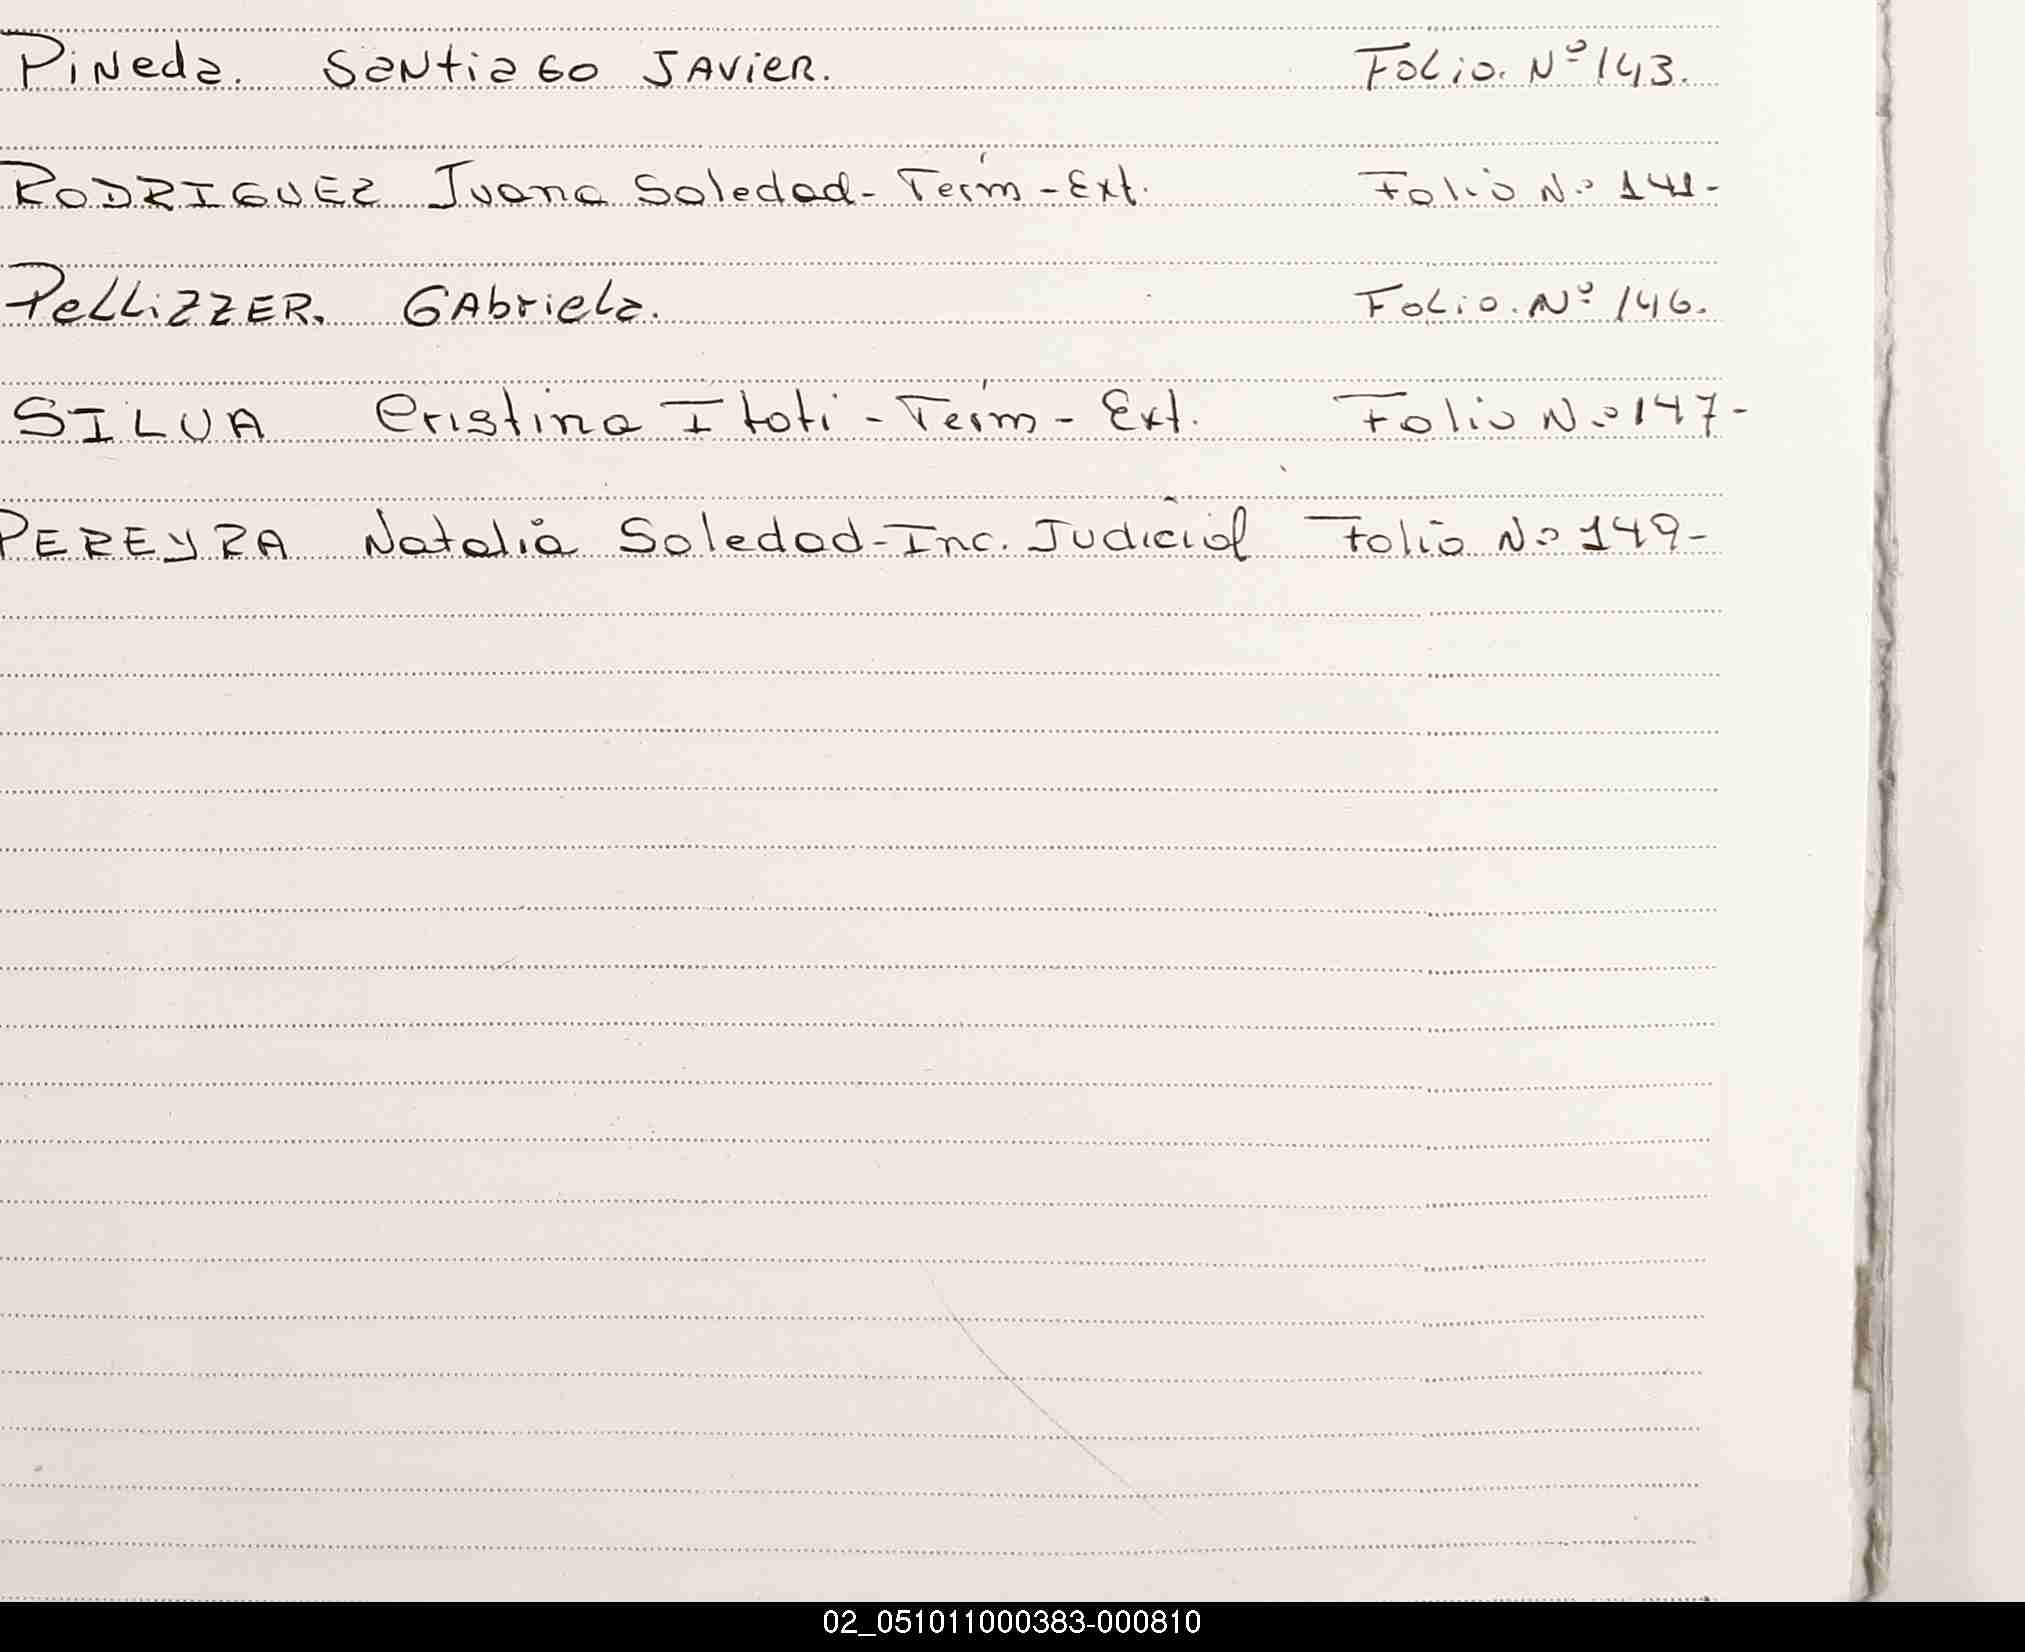 Pineda. Santiago Javier. Folio. Nº 143.
RODRIGUEZ Juana Soledad - Térm - Ext. Folio Nº 141-
Pellizzer. Gabriela. Folio. Nº 146.
SILVA Cristina Itati - Térm - Ext. Folio Nº 147-
PEREYRA Natalia Soledad - Inc. Judicial Folio Nº 149-
02_051011000383-000810